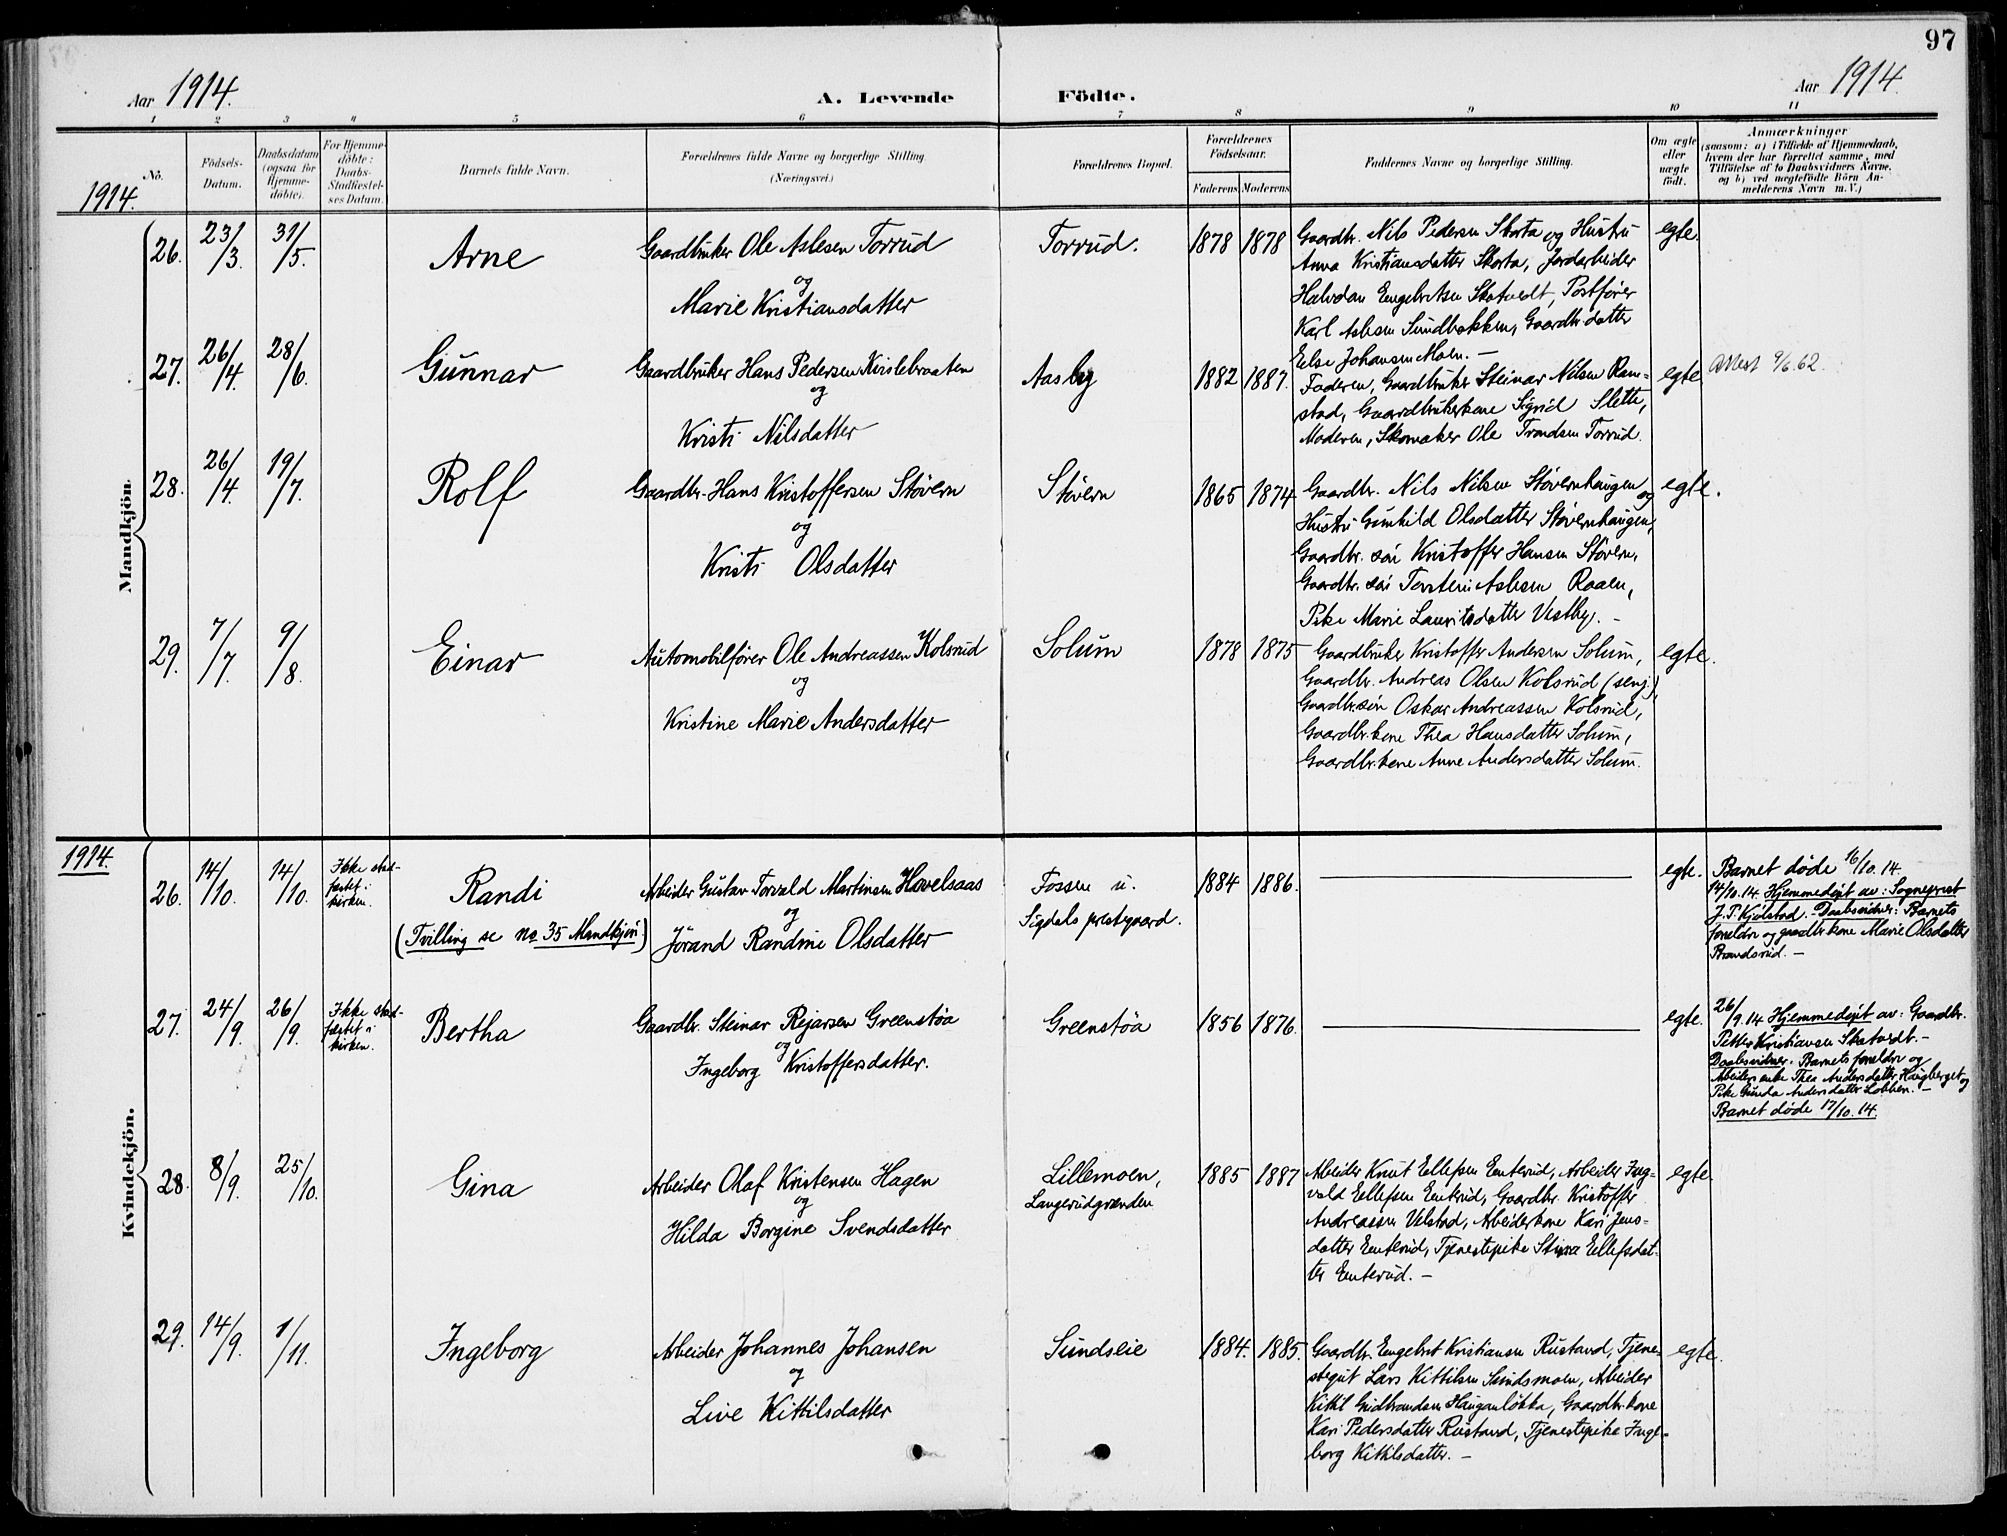 97
Aar 1914.
A. Levende Födte.
Aar 1914.
1 2 3 4 5 6 7 8 9 10 11
No.
Födsels-Datum.
Daabsdatum (ogsaa for Hjemme-döbte).
For Hjemme-döbte: Daabs-Stadfæstel-ses Datum.
Barnets fulde Navn.
Forældrenes fulde Navne og borgerlige Stilling.
(Næringsvei.)
Forældrenes Bopæl.
Forældrenes Födselsaar.
Faderens Moderens
Faddernes Navne og borgerlige Stilling.
Om ægte eller uægte födt.
Anmærkninger
(saasom: a) i Tilfælde af Hjemmedaab,
hvem der har forrettet samme, med
Tilföielse af to Daabsvidners Navne,
og b) ved uægtefödte Börn An-
melderens Navn m. V.)
1914.
Mandkjön.
26. 23/3. 31/5. Arne
Gaardbruker Ole Aslesen Torrud
og
Marie Kristiansdatter
Torrud. 1878 1878
Gaardbr. Nils Pedersen Skarta og Hustru
Anna Kristiansdatter Skarta, Jordarbeider
Halvdan Engebretsen Skatvedt, Postfører
Karl Aslesen Sundbakken, Gaardbr.datter
Else Johansen Moen. —
egte.
27. 26/4. 28/6. Gunnar
Gaardbruker Hans Pedersen Kvislebraaten
og
Kristi Nilsdatter
Aasby 1882 1887.
Faderen, Gaardbruker Steinar Nilsen Ram-
stad, Gaardbrukerkone Sigrid Slette,
Moderen, Skomaker Ole Trondsen Torrud.
egte. Attest 9/6.62.
28. 26/4. 19/7. Rolf
Gaardbr. Hans Kristoffersen Støvern
og
Kristi Olsdatter
Støvern 1865 1874
Gaardbr. Nils Nilsen Støvernhaugen og
Hustru Gunhild Olsdatter Støvernhaugen,
Gaardbr. søn Kristoffer Hansen Støvern,
Gaardbr. søn Torstein Aslesen Raaen,
Pike Marie Lauritsdatter Vestby. —
egte.
29. 7/7. 9/8. Einar
Automobilfører Ole Andreassen Kolsrud
og
Kristine Marie Andersdatter
Solum 1878 1875
Gaardbruker Kristoffer Andersen Solum,
Gaardbr. Andreas Olsen Kolsrud (senj.),
Gaardbr.søn Oskar Andreassen Kolsrud,
Gaardbr.kone Thea Hansdatter Solum,
Gaardbr.kone Anne Andersdatter Solum.
egte.
1914.
Kvindekjön.
26. 14/10. 14/10. Ikke stad-
fæstet i
kirken.
Randi
(Tvilling se no 35 Mandkjøn.)
Arbeider Gustav Torvald Martinsen Hovelsaas
og
Jørand Randine Olsdatter
Fossen u.
Sigdals prestgaard.
1884 1886. —
egte.
Barnet døde 16/10.14.
14/10.14 Hjemmedøpt av: Sogneprest
J. P. Kjelstad. – Daabsvidner: Barnets
foreldre og gaardbr.kone Marie Olsdatter
Brandsrud. —
27. 24/9. 26/9. Ikke stad-
fæstet i
kirken.
Bertha
Gaardbr. Steinar Rejarsen Greenstøa
og
Ingeborg Kristoffersdatter.
Greenstøa 1856 1876. —
egte.
26/9.14 Hjemmedøpt av: Gaardbr.
Petter Kristiansen Skatvedt. –
Daabsvidner: Barnets foreldre og
Arbeiderenke Thea Andersdatter Haugberget og
Pike Gunda Andersdatter Lobben. –
Barnet døde 17/10.14.
28. 8/9. 25/10. Gina
Arbeider Olaf Kristensen Hagen
og
Hilda Borgine Svendsdatter
Lillemoen,
Langerudgrænden
1885 1887
Arbeider Knut Ellefsen Enterud, Arbeider Ing-
vald Ellefsen Enterud, Gaardbr. Kristoffer
Andreassen Velstad, Arbeiderkone Kari Jens-
datter Enterud, Tjenestepike Stina Ellefsdat-
ter Enterud. —
egte.
29. 14/9. 1/11. Ingeborg
Arbeider Johannes Johansen
og
Live Kittilsdatter
Sundseie 1884. 1885.
Gaardbr. Engebret Kristiansen Rustand, Tjene-
stegut Lars Kittilsen Sundsmoen, Arbeider
Kittil Gudbrandsen Hauganløkka, Gaardbr.kone
Kari Pedersdatter Rustand, Tjenestepike Inge-
borg Kittilsdatter. —
egte.